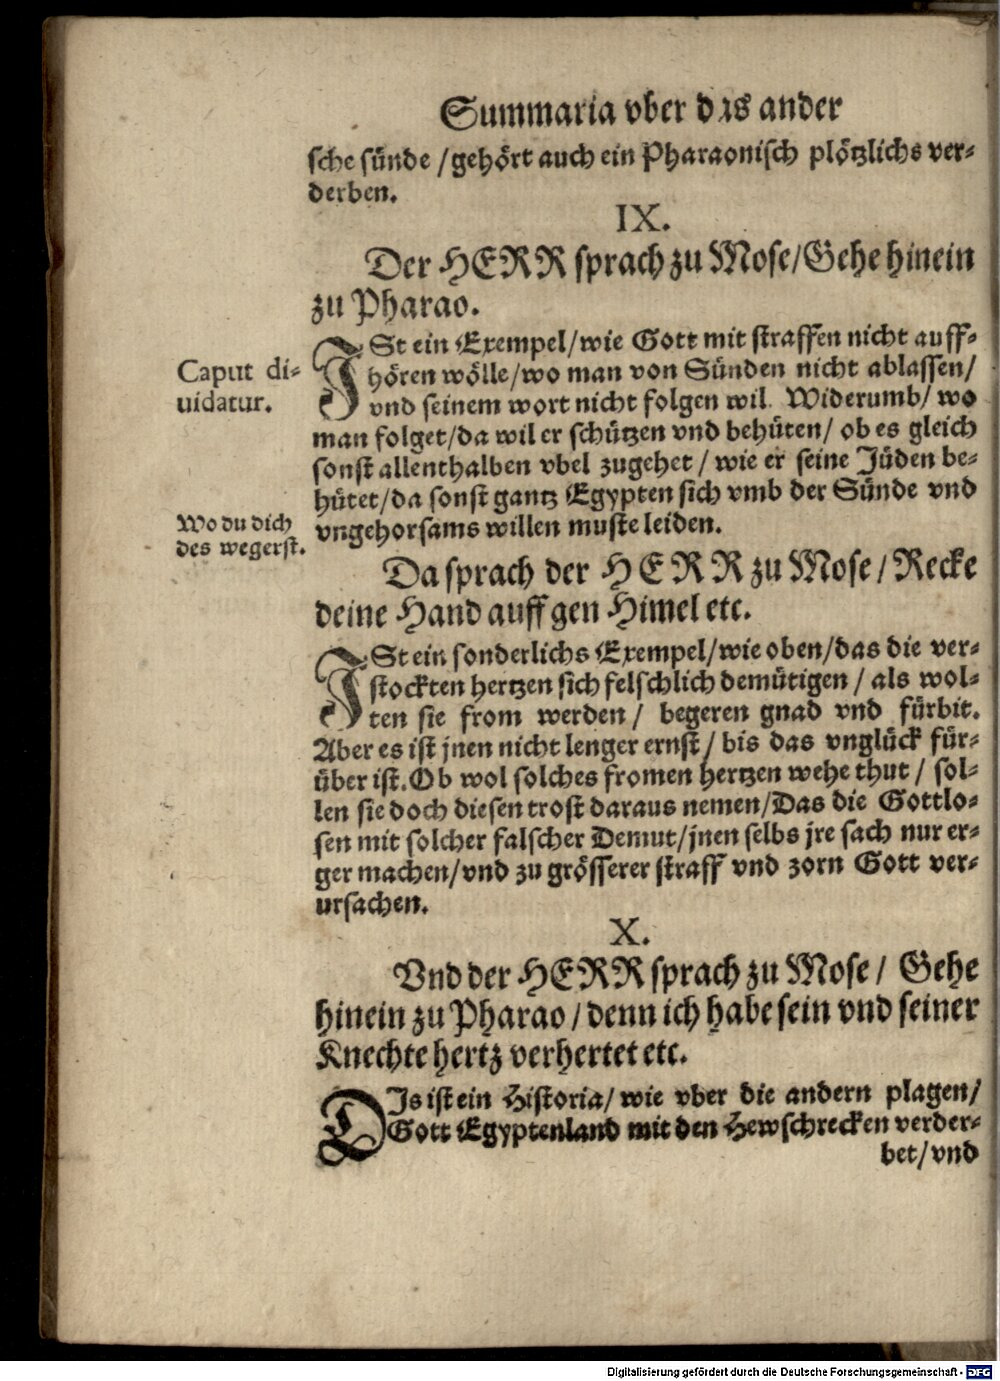 Summaria vber das ander
sche sünde /gehört auch ein Pharaonisch plötzlichs ver-
derben.
IX.
Der HERR sprach zu Mose/Gehe hinein
zu Pharao.
Caput di-
uidatur.
ISt ein Exempel/wie Gott mit straffen nicht auff-
hören wölle/wo man von Sünden nicht ablassen/
vnd seinem wort nicht folgen wil. Widerumb/ wo
man folget/da wil er schützen vnd behüten/ ob es gleich
sonst allenthalben vbel zugehet / wie er seine Jüden be-
hütet/da sonst gantz Egypten sich vmb der Sünde vnd
vngehorsams willen muste leiden.
Wo du dich
des wegerst.
Da sprach der HERR zu Mose / Recke
deine Hand auff gen Himel etc.
ISt ein sonderlichs Exempel/wie oben/das die ver-
stockten hertzen sich felschlich demütigen / als wol-
ten sie from werden/ begeren gnad vnd fürbit.
Aber es ist jnen nicht lenger ernst / bis das vnglück für-
über ist. Ob wol solches fromen hertzen wehe thut / sol-
len sie doch diesen trost daraus nemen/Das die Gottlo-
sen mit solcher falscher Demut/jnen selbs jre sach nur er-
ger machen/vnd zu grösserer straff vnd zorn Gott ver-
ursachen.
X.
Vnd der HERR sprach zu Mose / Gehe
hinein zu Pharao / denn ich habe sein vnd seiner
Knechte hertz verhertet etc.
DIs ist ein Historia/ wie vber die andern plagen/
Gott Egyptenland mit den Hewschrecken verder-
bet/vnd
Digitalisierung gefördert durch die Deutsche Forschungsgemeinschaft - DFG